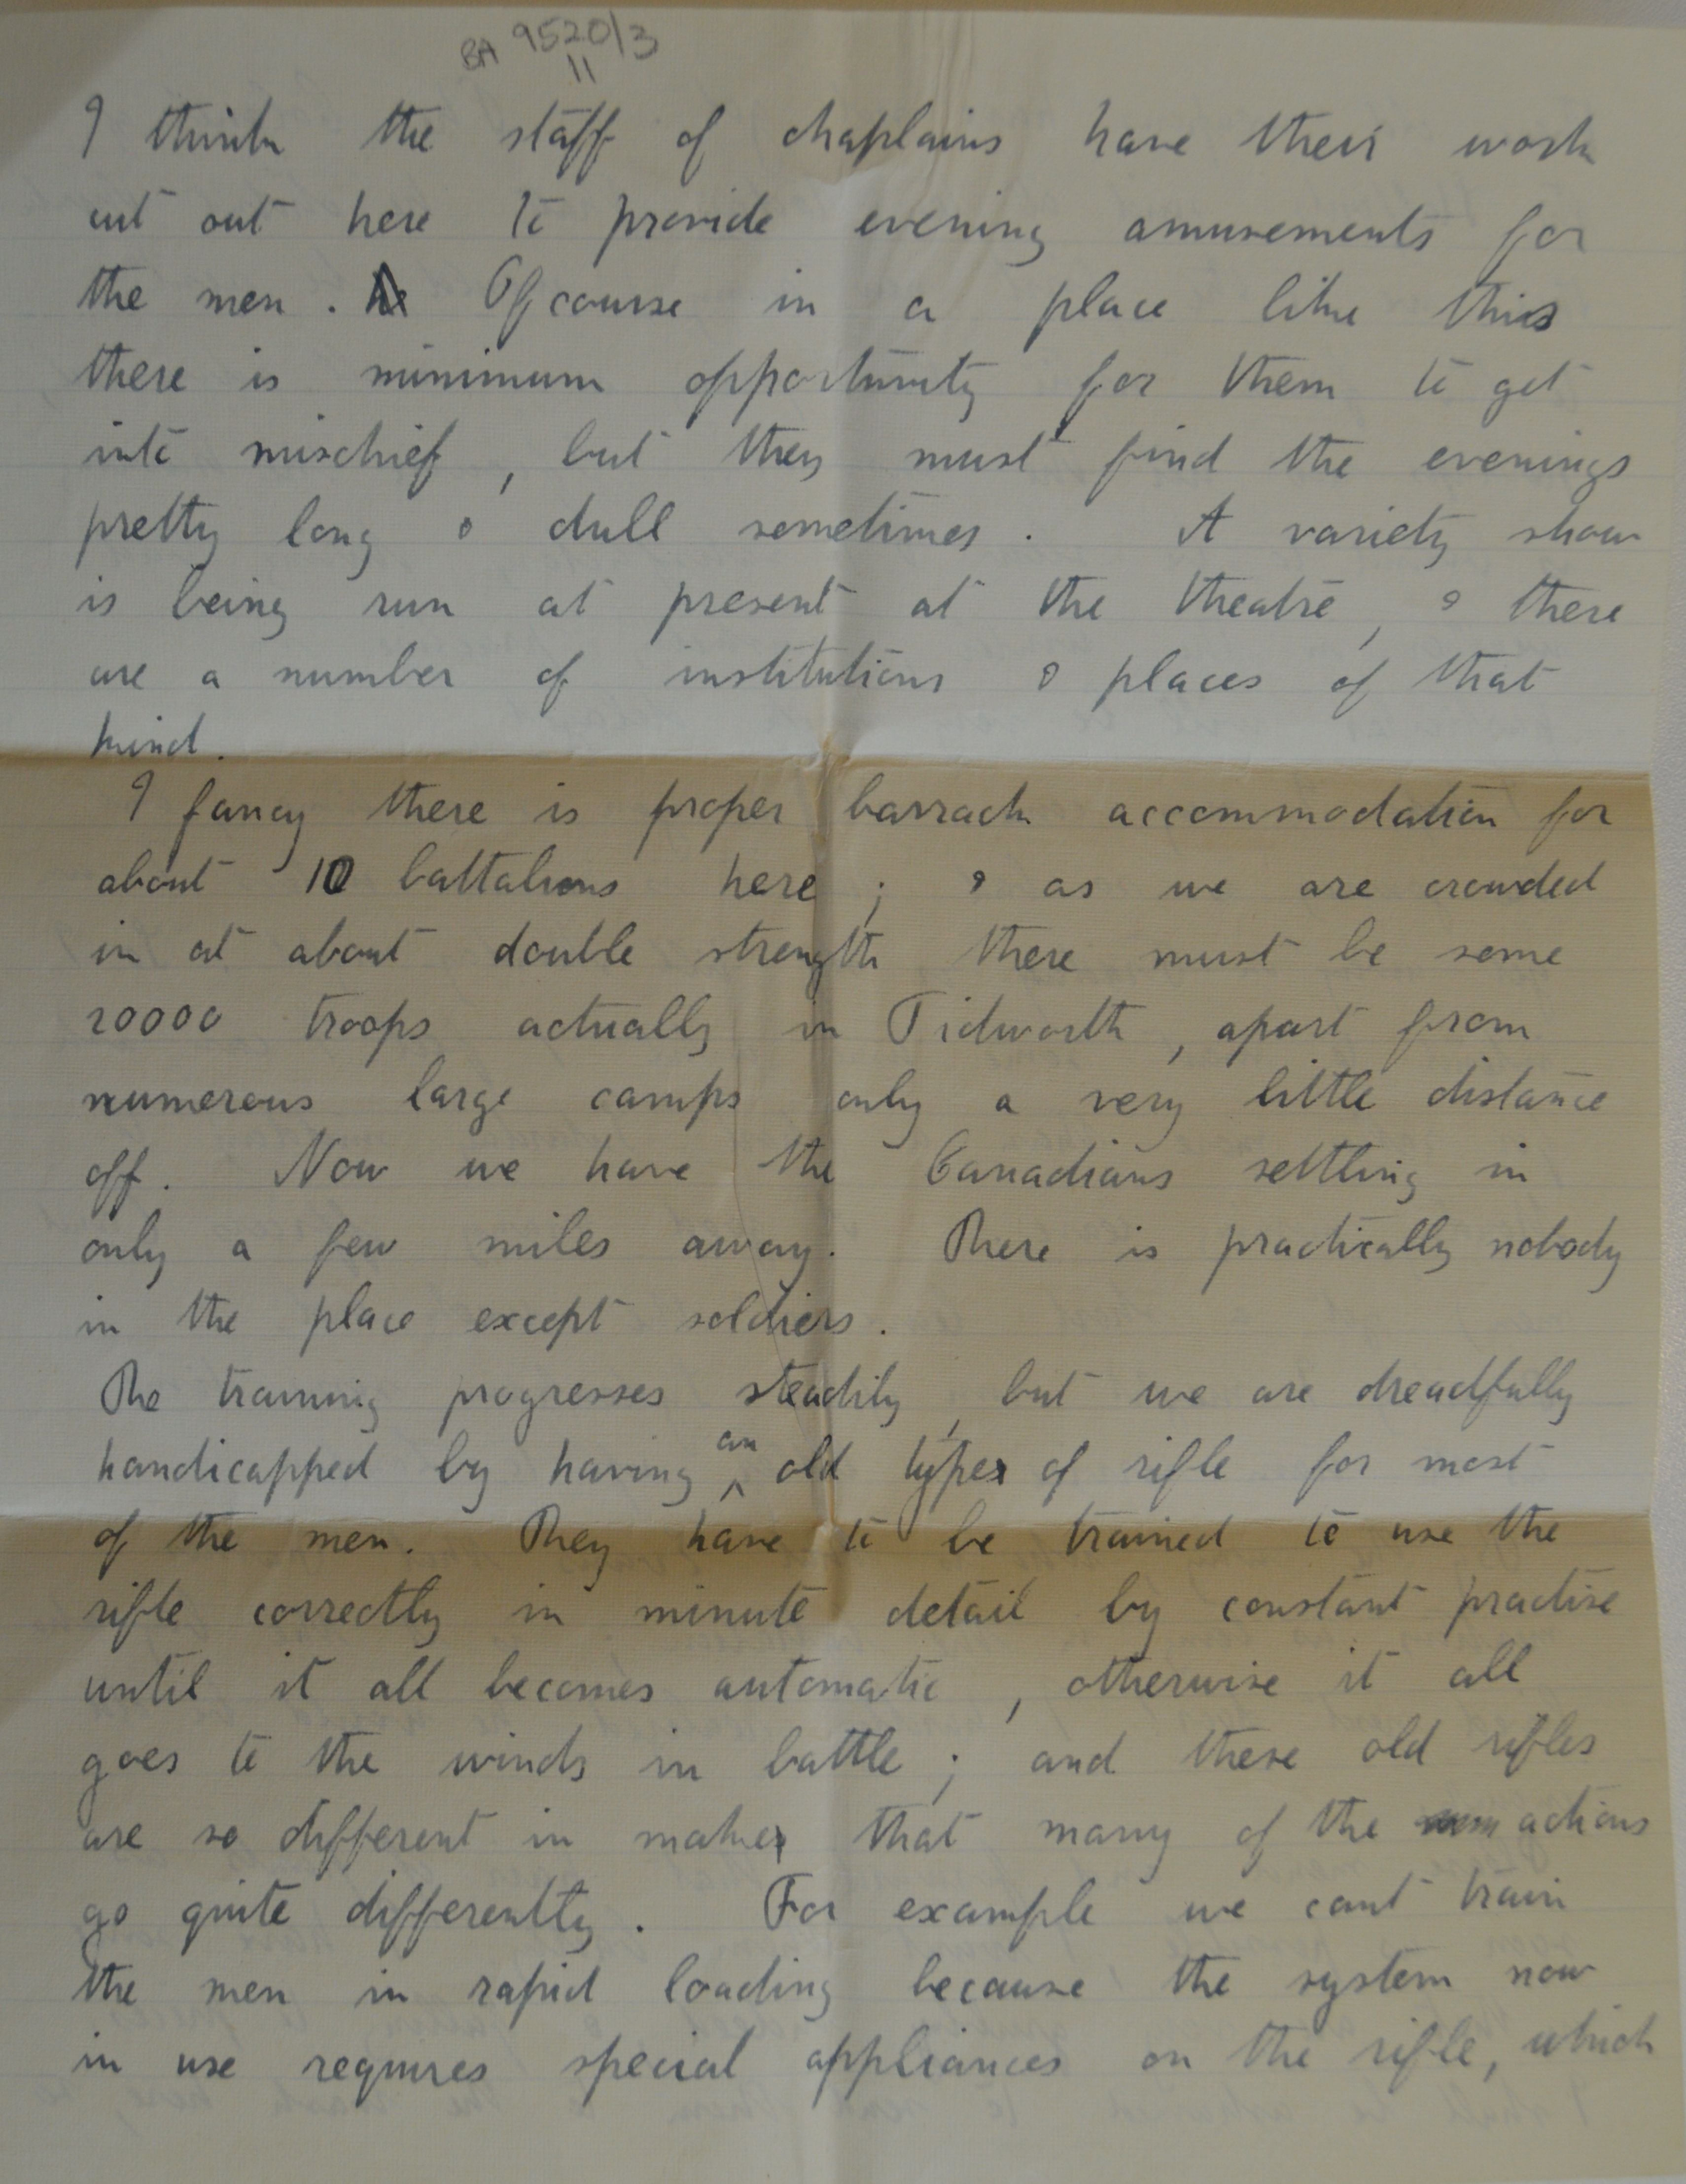 BA 9520/3
11
I think the staff of chaplains have their work
cut out here to provide evening amusements for
the men. Of course in a place like this
there is minimum opportunity for them to get
into mischief, but they must find the evenings
pretty long & dull sometimes. A variety show
is being run at present at the theatre, & there
are a number of institutions & places of that
kind.
I fancy there is proper barrack accommodation for
about 10 battalions here; & as we are crowded
in at about double strength there must be some
20000 troops actually in Tidworth, apart from
numerous large camps only a very little distance
off. Now we have the Canadians settling in
only a few miles away. There is practically nobody
in the place except soldiers.
The training progresses steadily, but we are dreadfully
handicapped by having an old type of rifle for most
of the men. They have to be trained to use the
rifle correctly in minute detail by constant practise
until it all becomes automatic, otherwise it all
goes to the winds in battle; and these old rifles
are so different in make that many of the actions
go quite differently. For example we cant train
the men in rapid loading because the system now
in use requires special appliances on the rifle, which